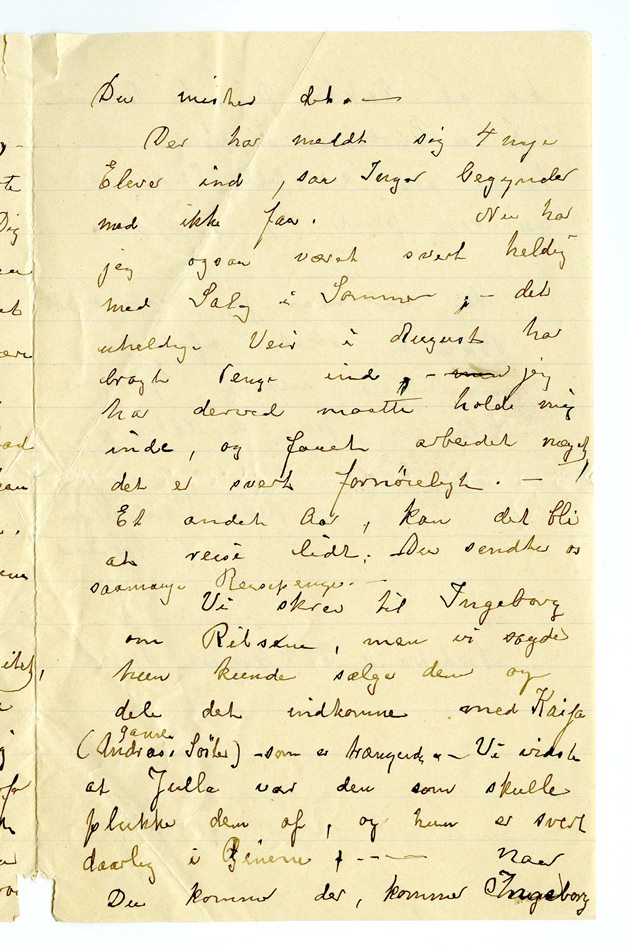 Du mister det. —
Der har meldt sig 4 nye
Elever ind, saa Inger begynder
med ikke faa. Nu har
jeg ogsaa været svert heldig
med Salg i Sommer, — det
uheldige Veir i August har
bragt Penge ind, — men jeg
har derved maatte holde mig
inde, og faaet arbeidet meget,
det er svert fornøieligt. —
Et andet Aar, kan det bli
at reise lidt. Du sendte os
saamange Reisepenge. —
Vi skrev til Ingeborg
om Ribsene, men vi sagde
hun kunde sælge dem og
dele det indkomne med Kaisa
(Andreas Søster) — som er trængende. — Vi vidste
at Julla var den som skulle
plukke dem af, og hun er svert
daarlig i Benene, — — — Naar
Du kommer der, kommer Ingeborg